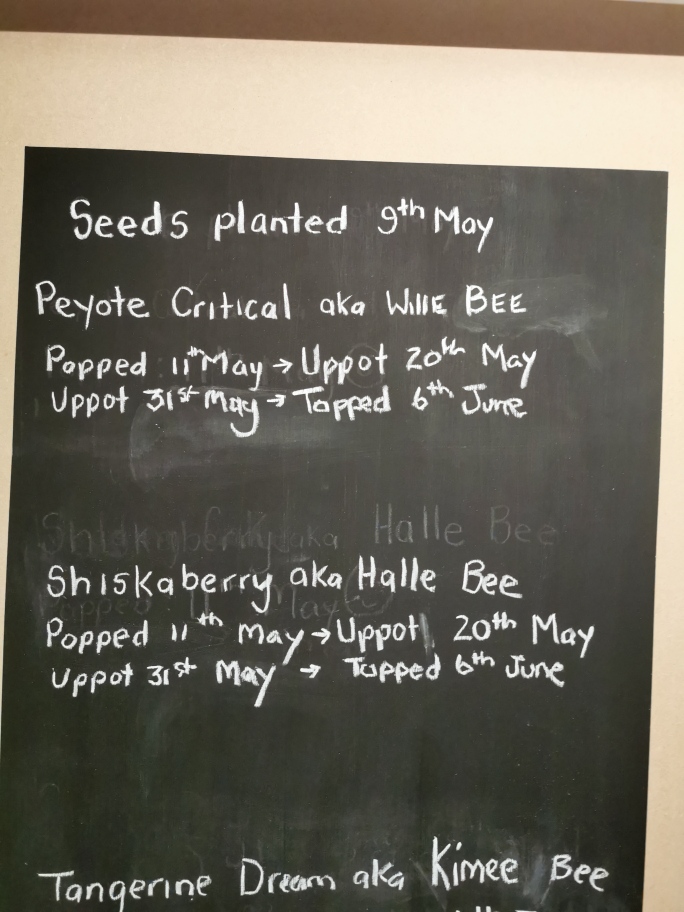 Seeds planted 9th May
Peyote Critical aka WillE BEE
Popped 11th May → Uppot 20th May
Uppot 31st May → Topped 6th June
Halle Bee
Shiskaberry aka Halle Bee
Popped 11th May → Uppot 20th May
Uppot 31st May → Topped 6th June
Tangerine Dream aka Kimee Bee